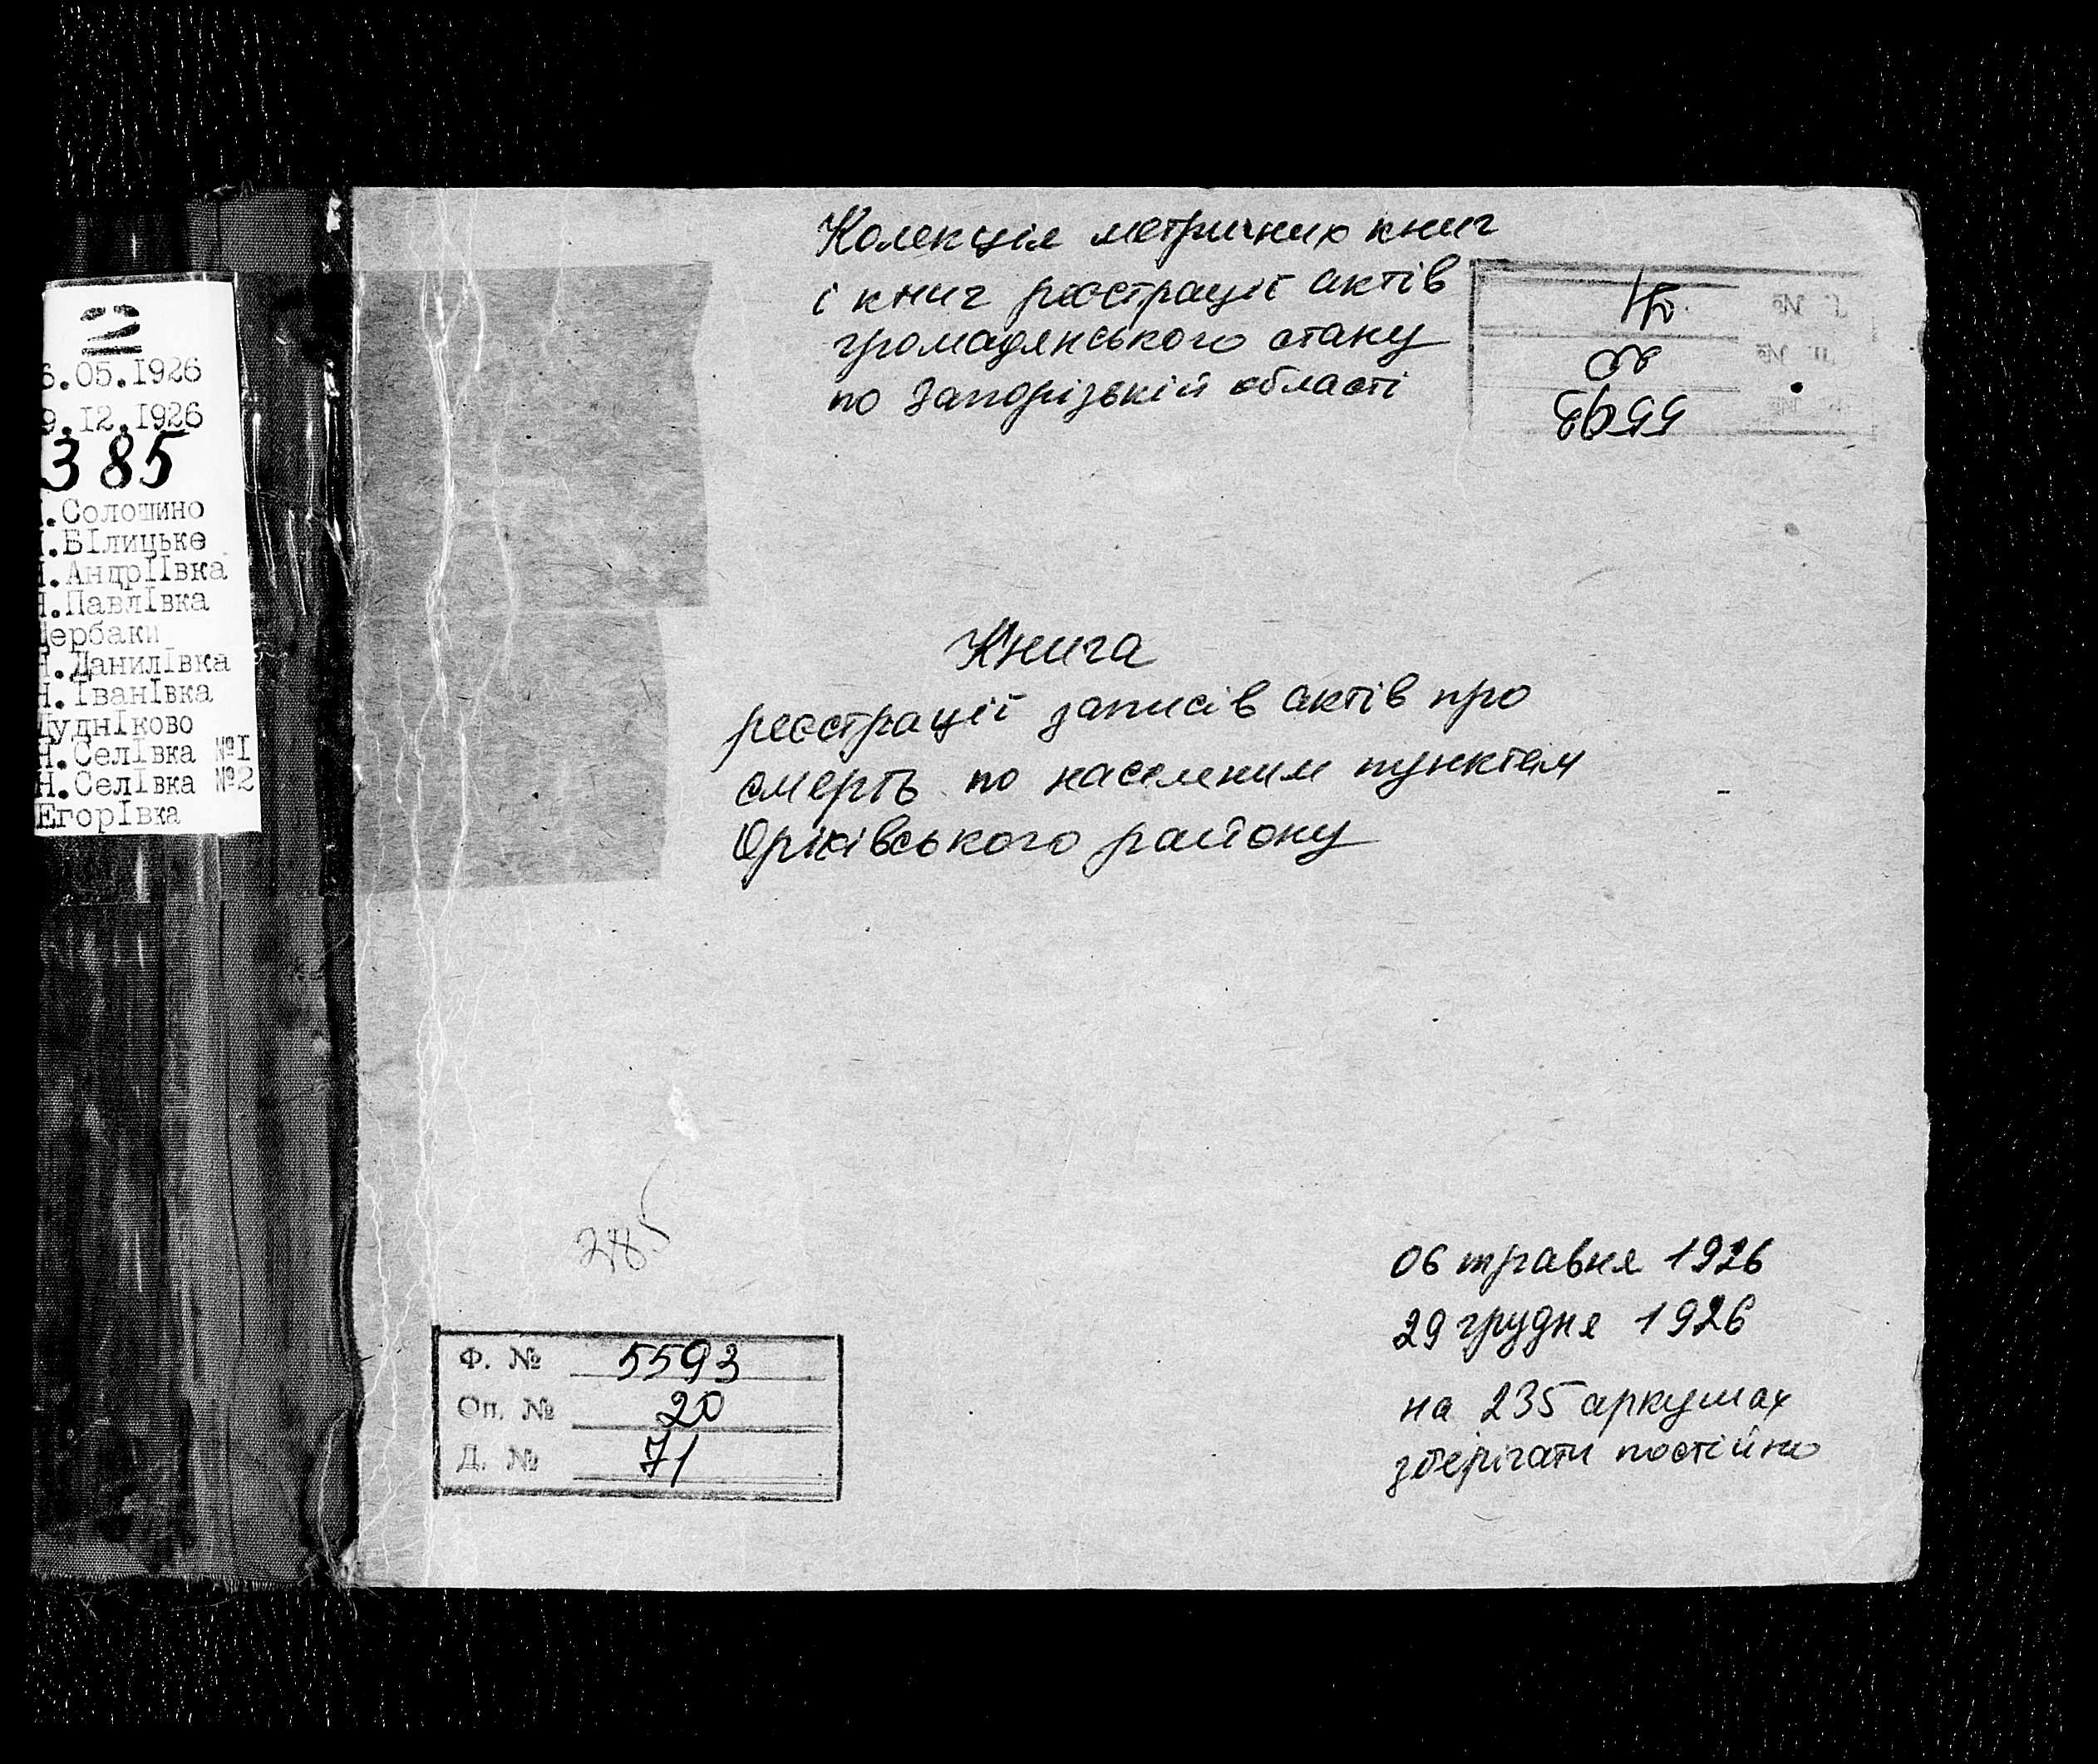 2
6.05.1926
9.12.1926
385
.Солошино
.БІлицьке
.АндрІІвка
Н.ПавлІвка
Щербаки
Н.ДанилІвка
Н.ІванІвка
ЧуднІково
Н.СелІвка №І
Н.СелІвка №2
ЕгорІвка
Колекція метричних книг
і книг реєстрації актів
громадянського стану
по Запорізькій області
71
20
5593
Книга
реєстрації записів актів про
смерть по населеним пунктам
Оріхівського району
385
06 травня 1926
29 грудня 1926
на 235 аркушах
зберігати постійно
Ф. № 5593
Оп. № 20
Д. № 71